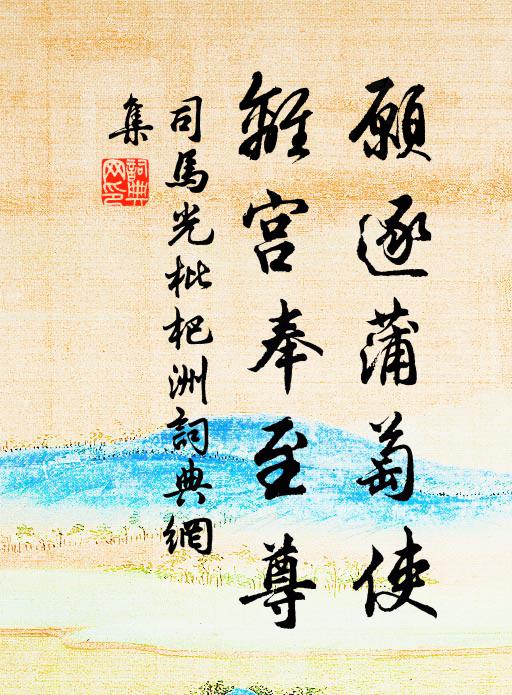 願逐蒲萄使
離宮奉至尊
司馬光枇杷洲詞典網
集
詞典網印